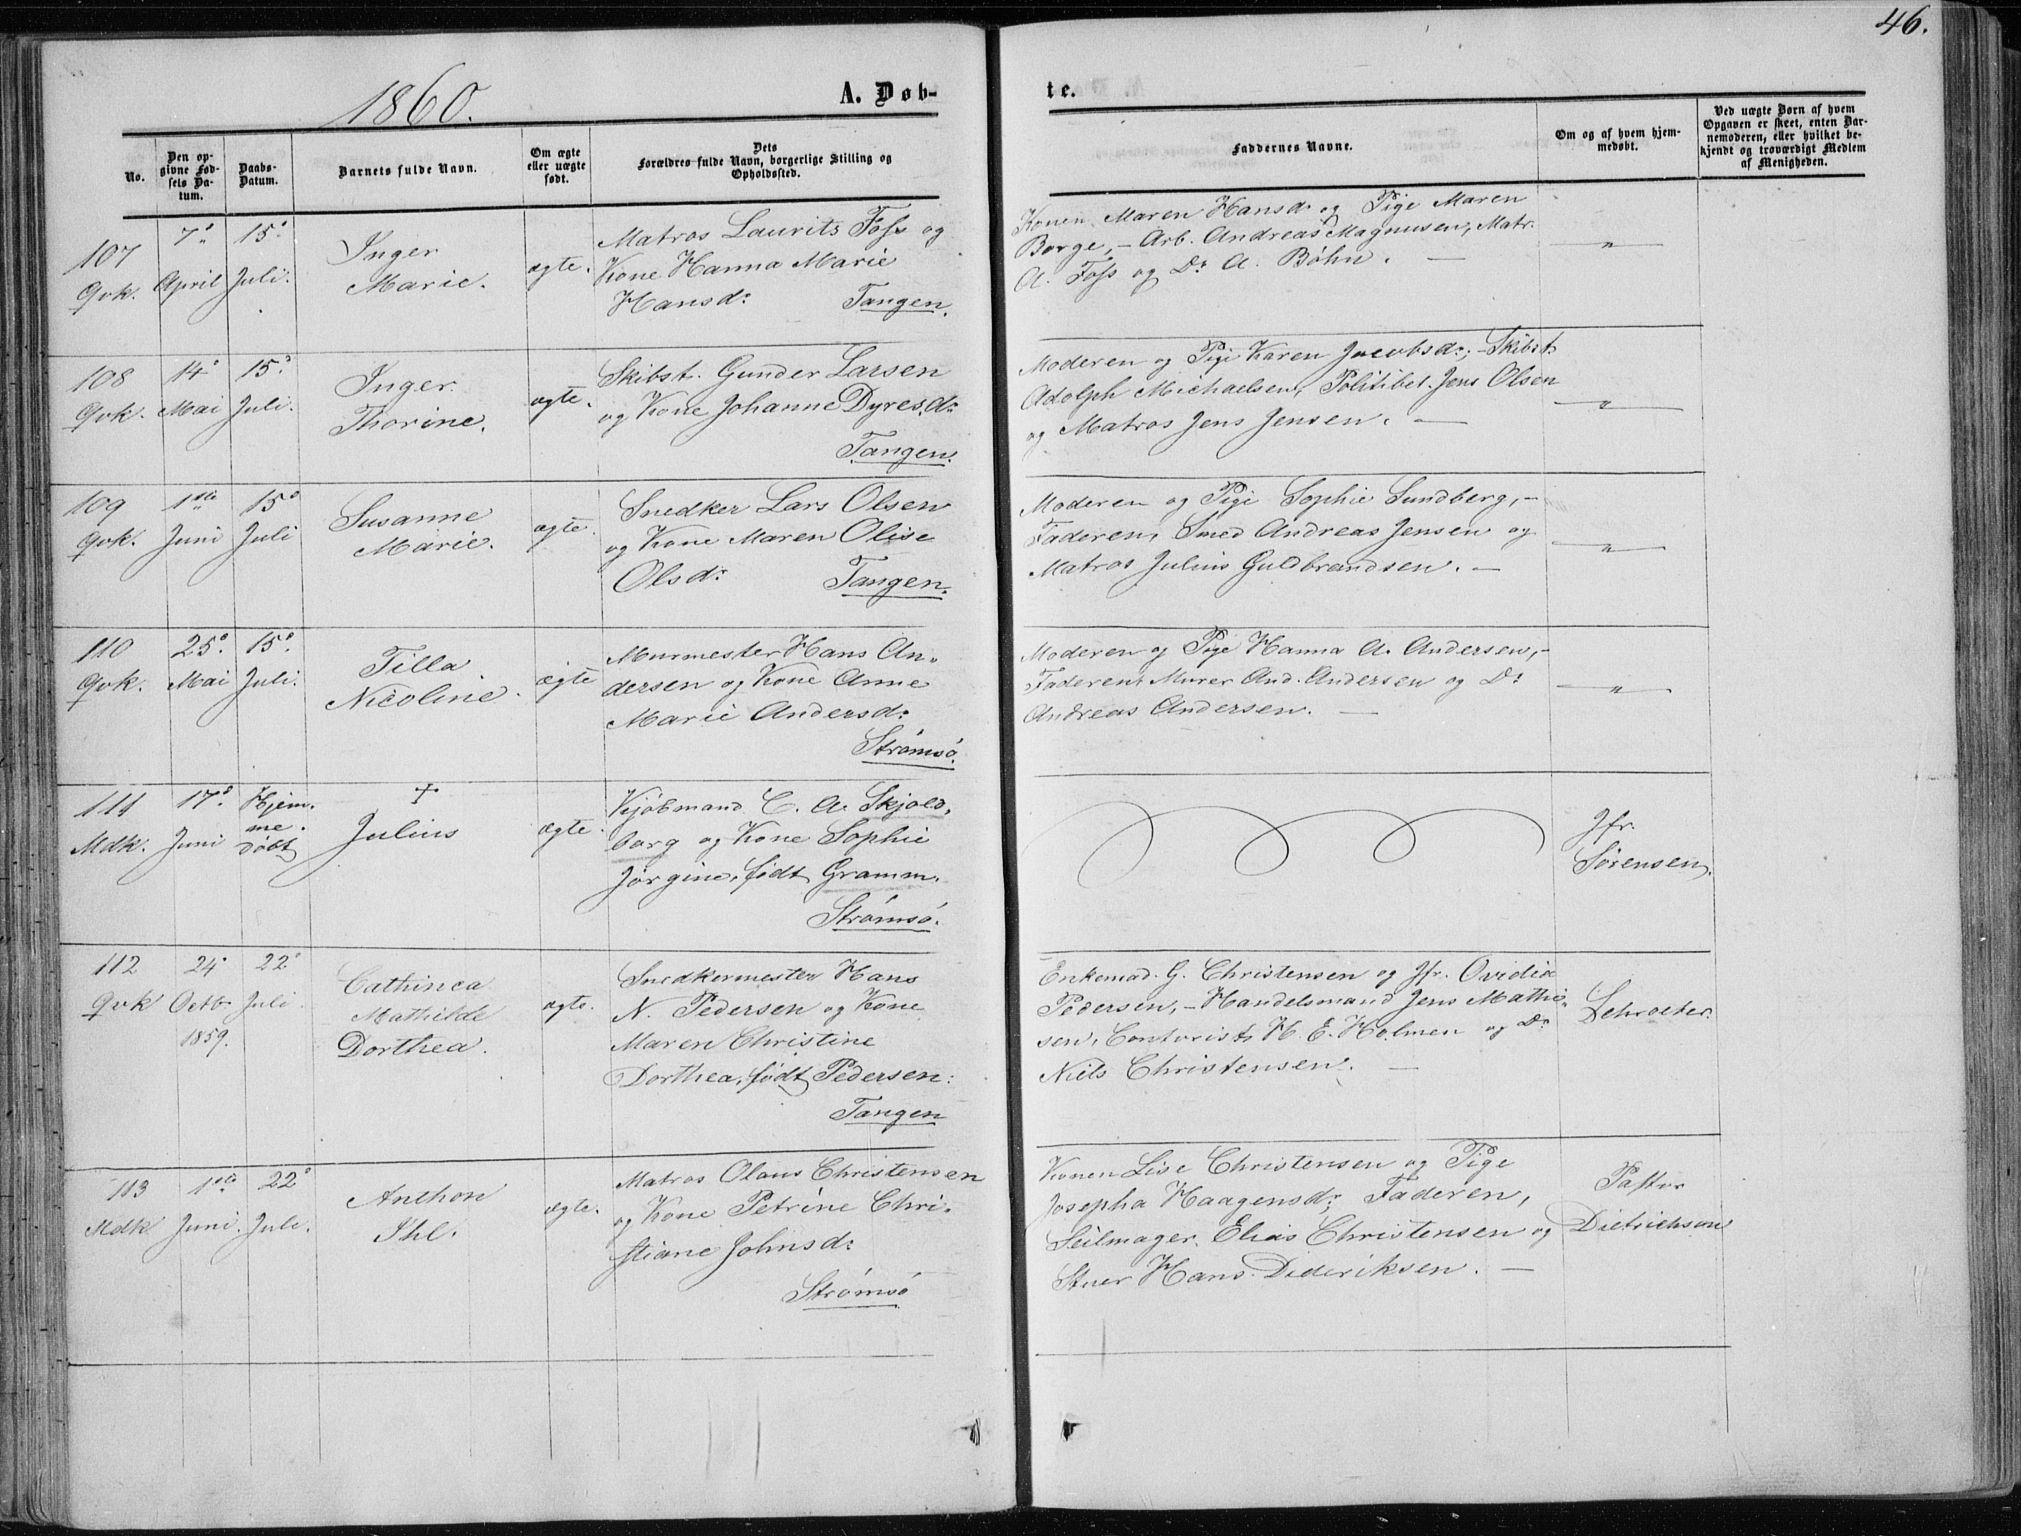 46.
1860.
A. Døb-
te.
No.
Den op-
givne Fød-
sels Da-
tum.
Daabs-
Datum.
Barnets fulde Navn.
Om ægte
eller uægte
født.
Dets
Forældres fulde Navn, borgerlige Stilling og
Opholdssted.
Faddernes Navne.
Om og af hvem hjem-
medøbt.
Ved uægte Børn af hvem
Opgaven er skeet, enten Bar-
nemoderen, eller hvilket be-
kjendt og troværdigt Medlem
af Menigheden.
107
Qvk.
7de
April
15de
Juli.
Inger
Marie.
ægte.
Matros Laurits Foss og
Kone Hanna Marie
Hansd:
Tangen.
Konen Maren Hansd: og Pige Maren
Borge, - Arb. Andreas Magnusen, Matr.
A. Foss og Do A. Bøhn. —
"
108
Qvk.
14de
Mai
15de
Juli.
Inger
Thorine.
ægte.
Skibst. Gunder Larsen
og Kone Johanne Dyresd:
Tangen.
Moderen og Pige Karen Jacobsd:, - Skibst.
Adolph Michaelsen, Politibet. Jens Olsen
og Matros Jens Jensen. —
"
109
Qvk.
1ste
Juni
15de
Juli
Susanne
Marie.
ægte.
Snedker Lars Olsen
og Kone Maren Olise
Olsd:
Tangen.
Moderen og Pige Sophie Sundberg, -
Faderen, Smed Andreas Jensen og
Matros Julius Guldbrandsen. —
"
110
Qvk.
25de
Mai
15de
Juli.
Tilla
Nicoline.
ægte
Murmester Hans An-
dersen og Kone Anne
Marie Andersd:
Strømsø.
Moderen og Pige Hanna A. Andersen, -
Faderen, Murer And. Andersen og Do
Andreas Andersen. —
"
111
Mdk.
17de
Juni
Hjem-
me-
døbt
+
Julius
ægte.
Kjøbmand C. A. Skjold-
borg og Kone Sophie
Jørgine, født Gramm.
Strømsø.
Jfr.
Sørensen.
112
Qvk
24de
Octb.
1859.
22de
Juli
Cathinca
Mathilde
Dorthea.
ægte.
Snedkermester Hans
N. Pedersen og Kone
Maren Christine
Dorthea, født Pedersen:
Tangen
Enkemad. G. Christensen og Jfr. Ovidia
Pedersen, - Handelsmand Jens Mathi-
sen, Contorist H. E. Holmen og Do
Niels Christensen. —
Schroeter.
113
Mdk
1ste
Juni.
22de
Juli.
Anthon
Ihl.
ægte.
Matros Olaus Christensen
og Kone Petrine Chri-
stiane Johnsd:
Strømsø
Konen Lise Christensen og Pige
Josepha Haagensd:, Faderen,
Seilmager Elias Christensen og
Stuer Hans Dideriksen. —
Pastor
Dietrichson